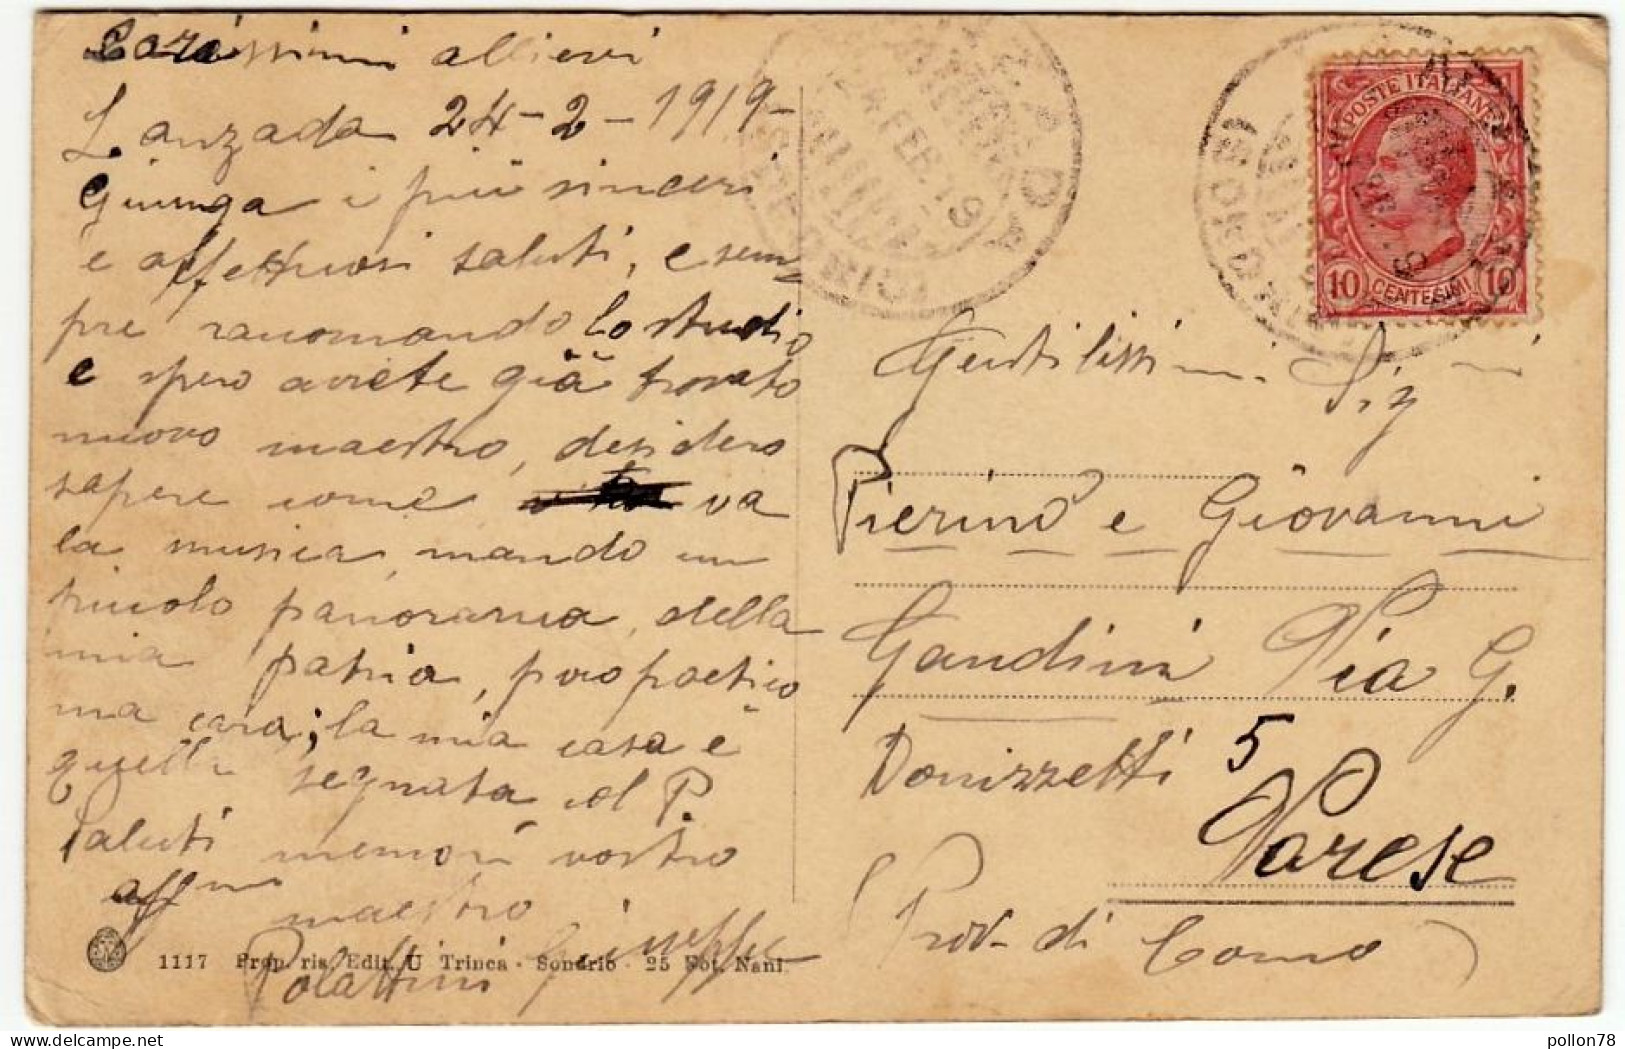 Carissimi allievi
Lanzada 24-2-1919-
Giunga i più sinceri
e affettuosi saluti, e sem-
pre racomando lo studio
e spero avrete già trovato
nuovo maestro, desidero
sapere come va
la musica, mando un
piccolo panorama, della
mia patria, poco poetico
ma cara; la mia casa è
quella segnata col P.
Saluti memori vostro
aff mo maestro
Polattini Giuseppe
1117 Prop. ris. Edit. U Trinca - Sondrio - 25 Fot. Nani
LANZADA
24 FEB. 19
SONDRIO
POSTE ITALIANE
10 CENTESIMI 10
LANZADA
(SONDRIO)
Gentilissimi Sig ni
Pierino e Giovanni
Gandini Via G.
Donizzetti 5
Varese
(Prov. di Como)
pollon78